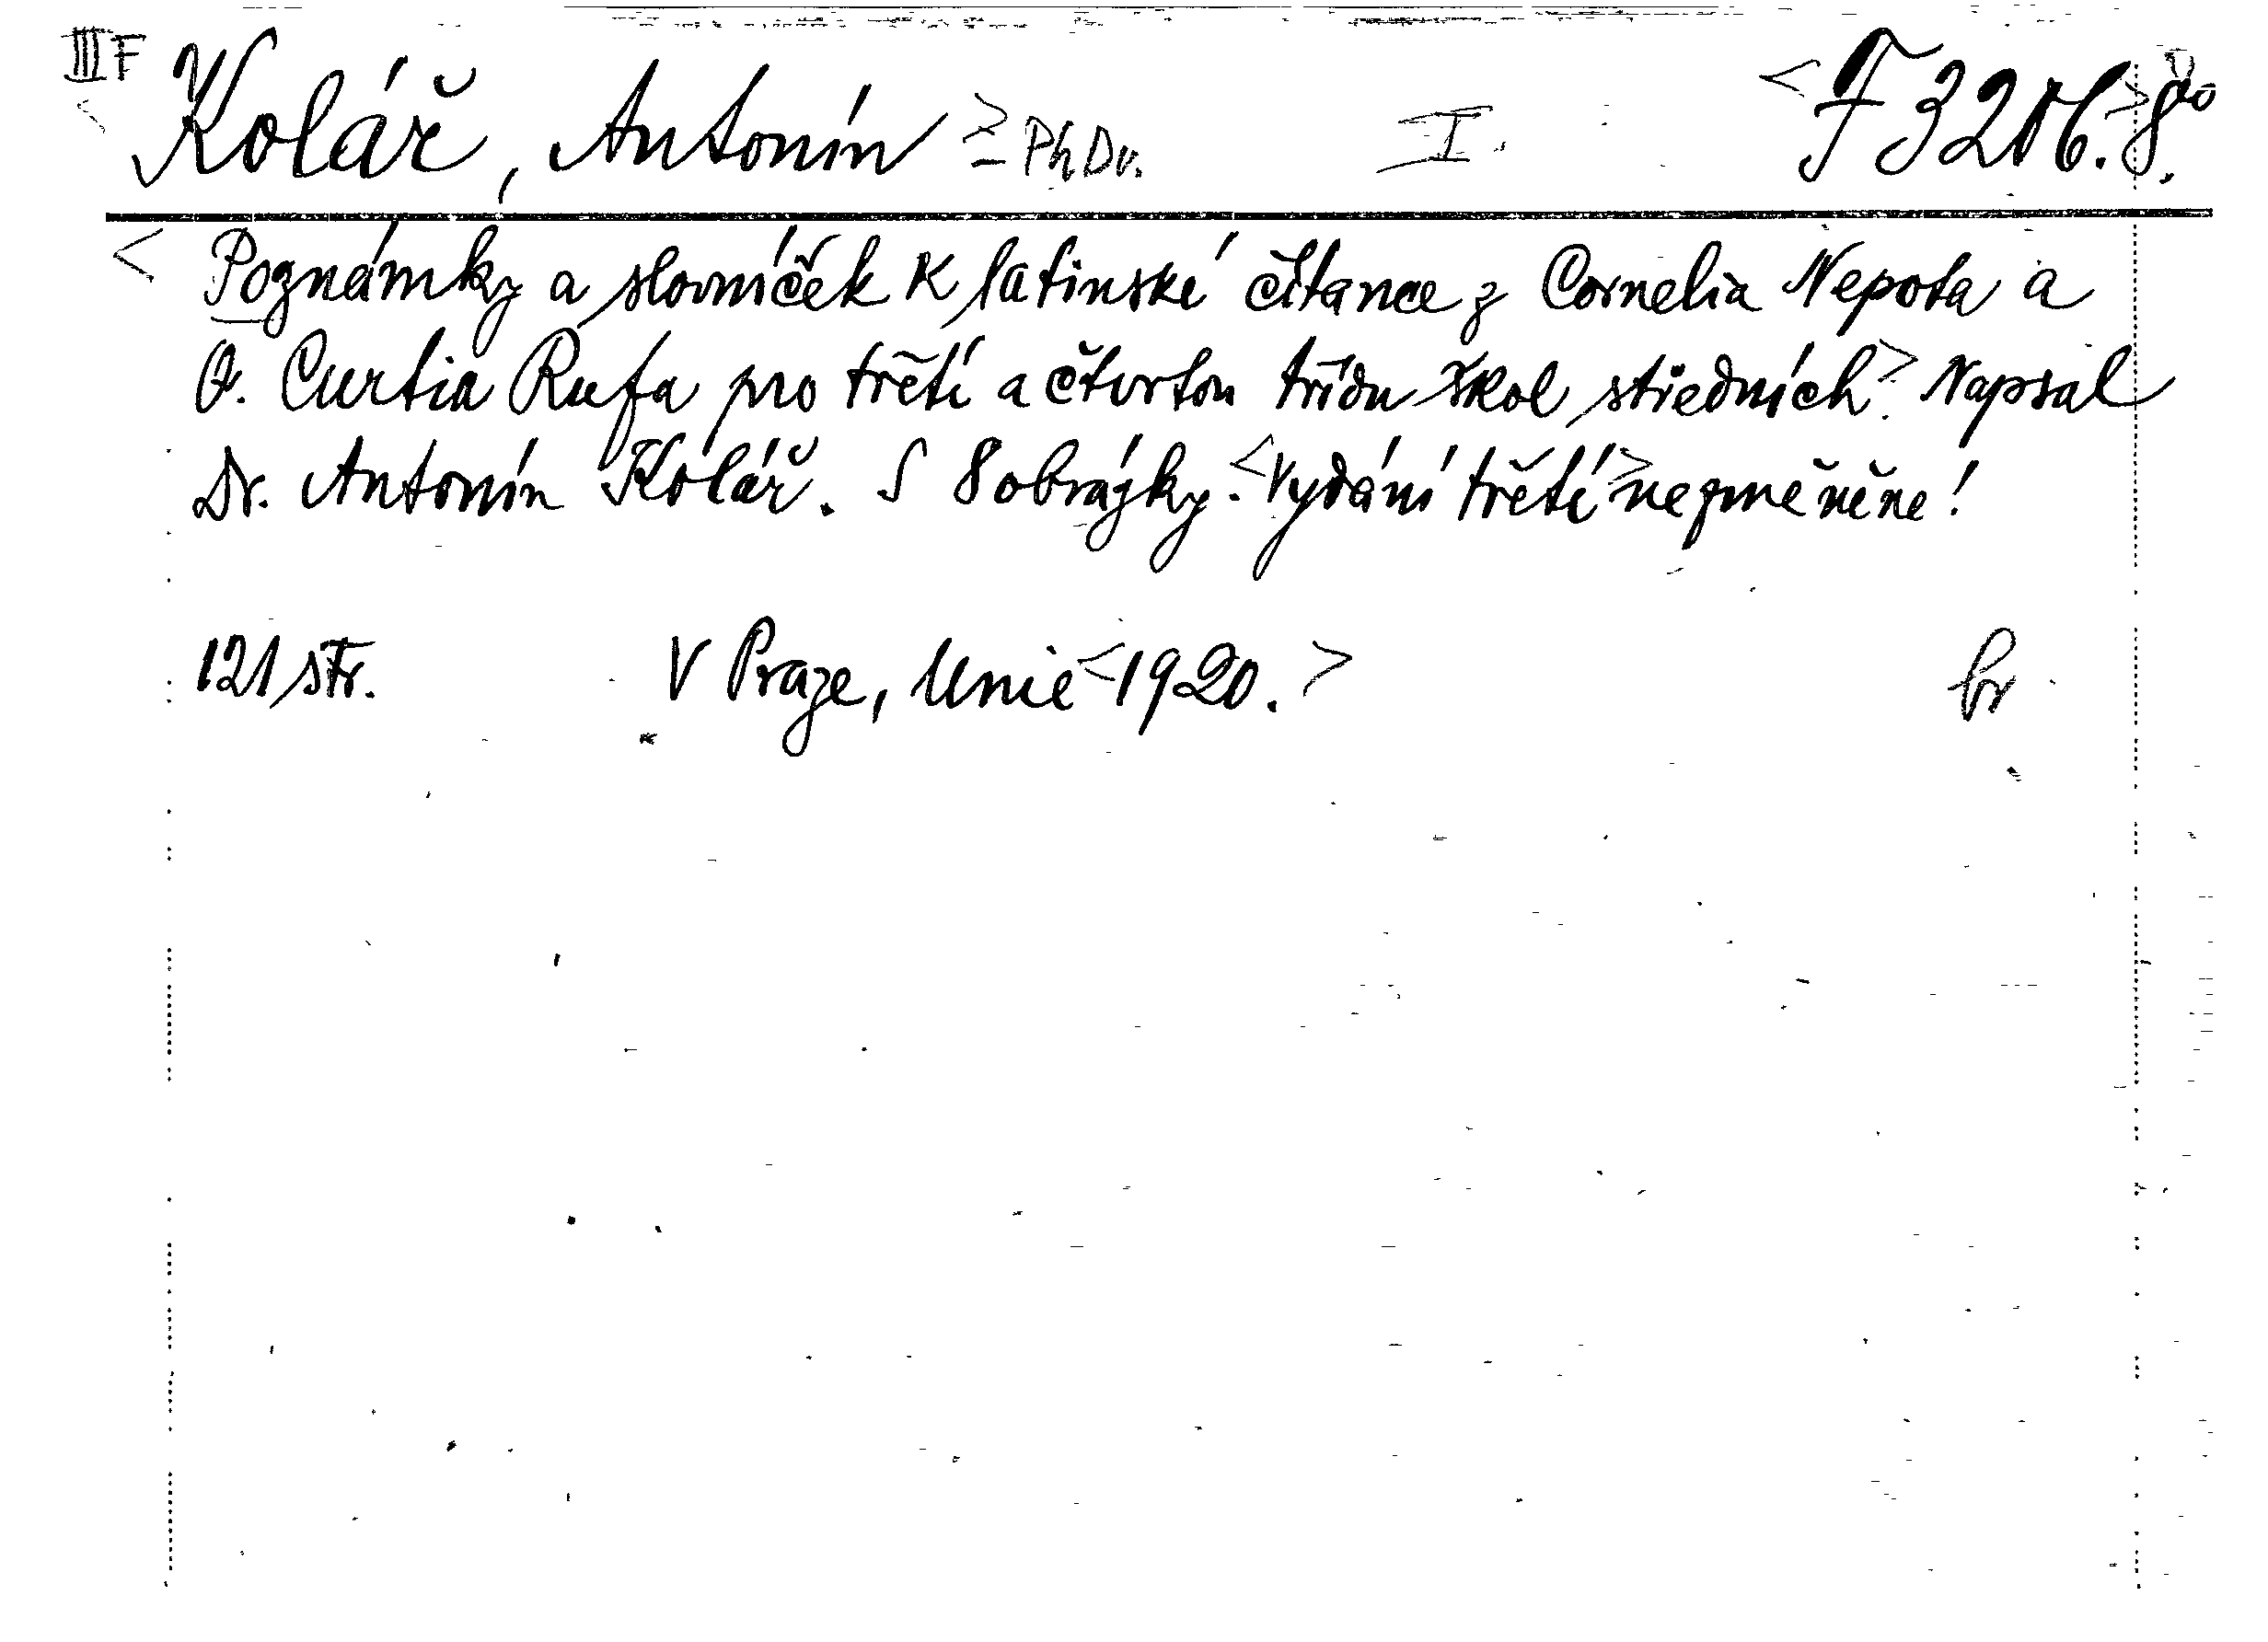 III F
< Kolář, Antonín > – PhDr. I. < F 3216. > 8°.
< Poznámky a slovníček k latinské čítance z Cornelia Nepota a
Q. Curtia Rufa pro třetí a čtvrtou třídu škol středních >. Napsal
Dr. Antonín Kolář. S 8 obrázky. < Vydání třetí > nezměněné!
121 str. V Praze, Unie < 1920. > br